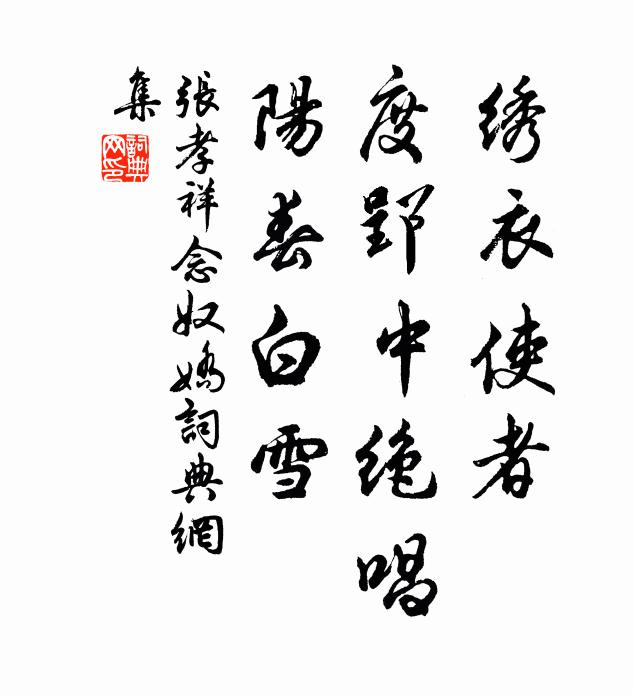 绣衣使者
度郢中绝唱
陽春白雪
張孝祥念奴嬌詞典網
集
詞典
网印